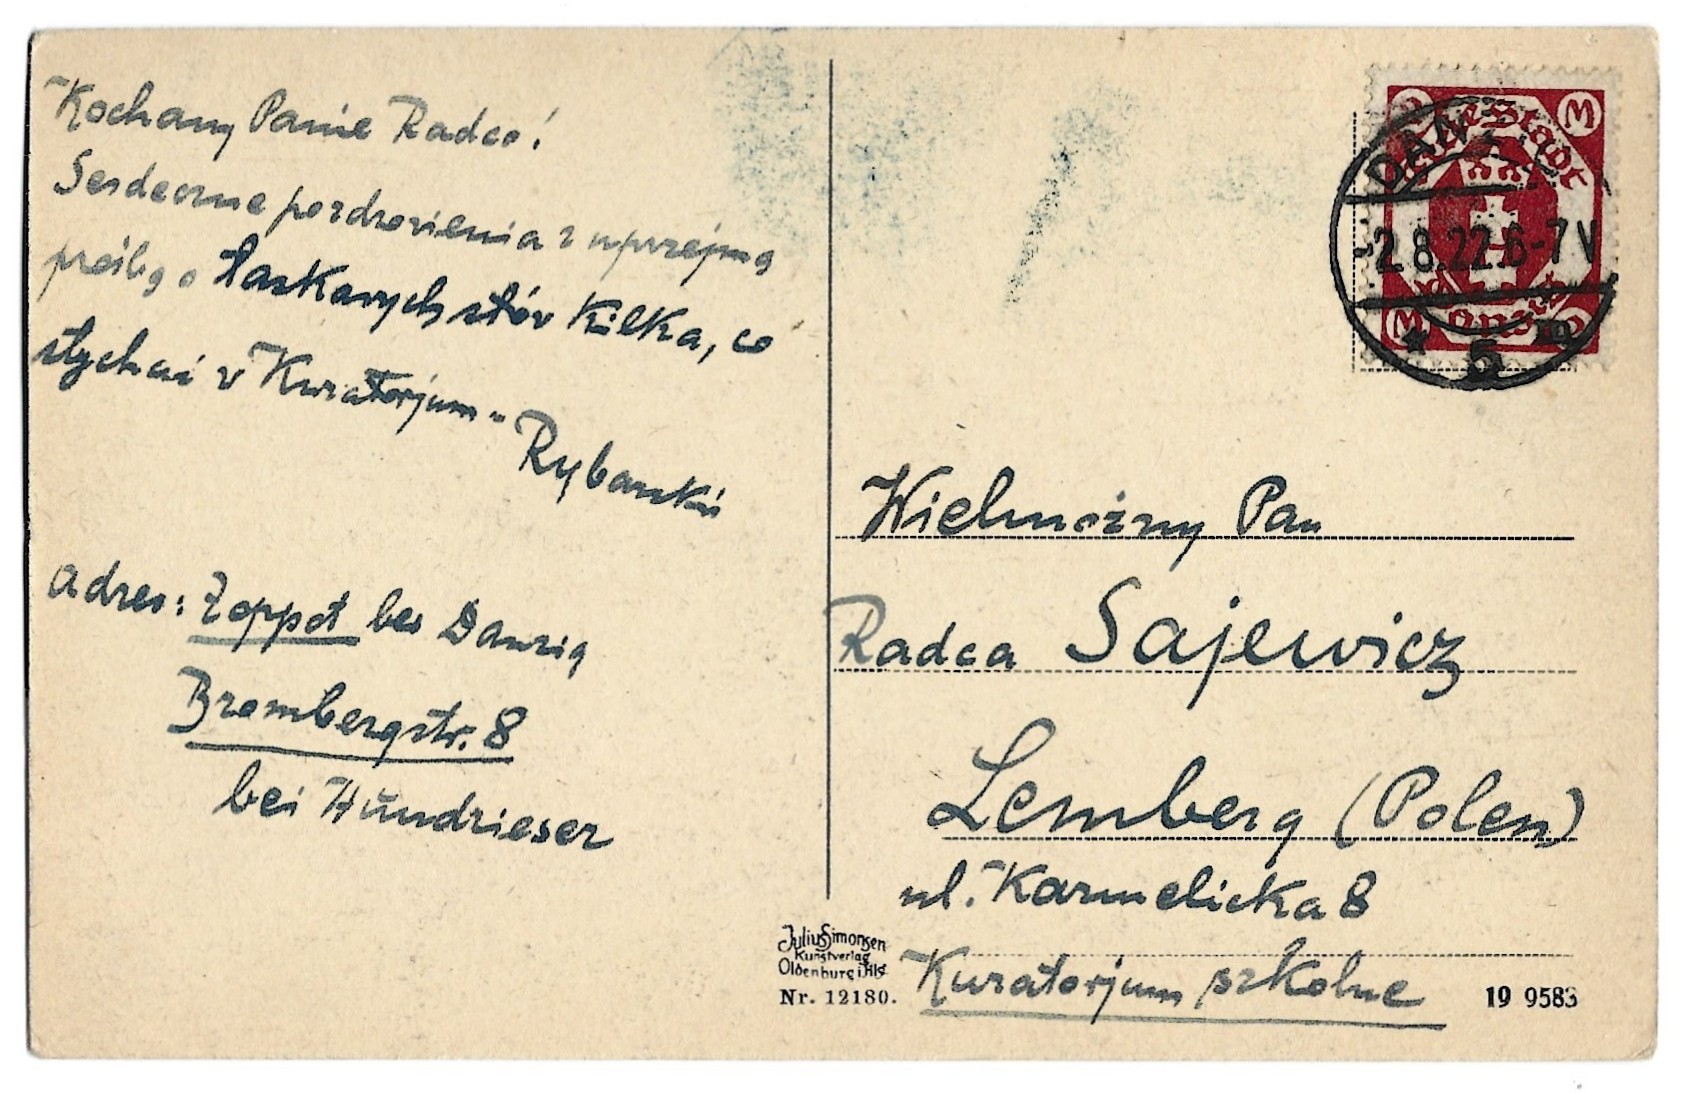 Kochany Panie Radco!
Serdeczne pozdrowienia z uprzejmą
prośbą o łaskawych słów kilka, co
słychać w Kuratorjum –
Rybarski
Adres: Zoppot bei Danzig
Brombergstr. 8
bei Hundrieser
Freie Stadt
Danzig
M
M
DANZIG
-2.8.22.6-7V
* 5 m
Wielmożny Pan
Radca Sajewicz
Lemberg (Polen)
ul. Karmelicka 8
Kuratorjum szkolne
Julius Simonsen
Kunstverlag
Oldenburg i. Hls.
Nr. 12180.
19 9583